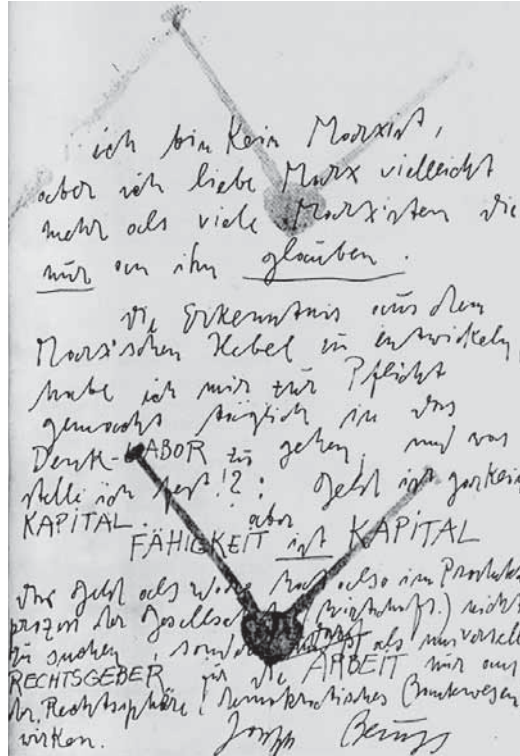 ich bin kein Marxist,
aber ich liebe Marx vielleicht
mehr als viele Marxisten die
nur an ihn glauben.
die Erkenntnis aus dem
Marxschen Hebel zu entwickeln,
habe ich mir zur Pflicht
gemacht täglich in das
Denk-LABOR zu gehen, und was
stelle ich fest!?: Geld ist gar kein
KAPITAL. aber
FÄHIGKEIT ist KAPITAL
das Geld als Ware hat also im Produkts
prozess der Gesellschaft (Wirtschaft.) nichts
zu suchen, als
RECHTSGEBER für die ARBEIT nur aus
der Rechtssphäre: demokratisches Bankwesen
wirken. Joseph Beuys